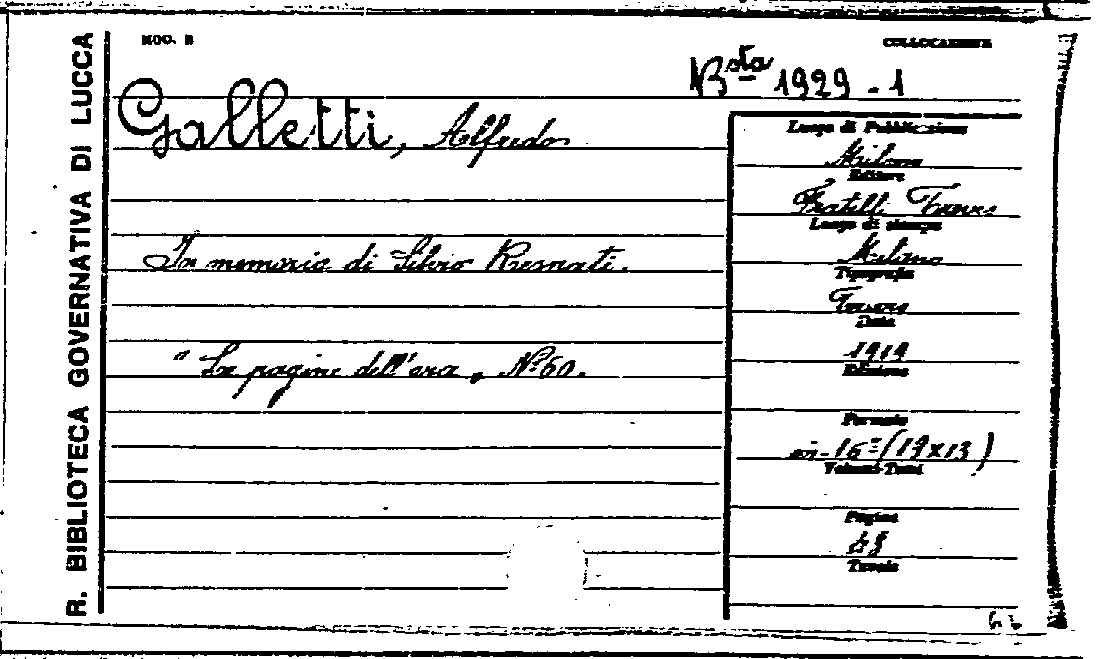 R. BIBLIOTECA GOVERNATIVA DI LUCCA
MOD. B
COLLOCAZIONE
Bsta 1929 - 1
Galletti, Alfredo
In memoria di Silvio Resnati.
" Le pagine dell'ora „ N° 60.
Luogo di Pubblicazione
Milano
Editore
Fratelli Treves
Luogo di stampa
Milano
Tipografia
Treves
Data
1919
Edizione
Formato
in-16° (19x13)
Volumi-Tomi
Pagine
Tavole